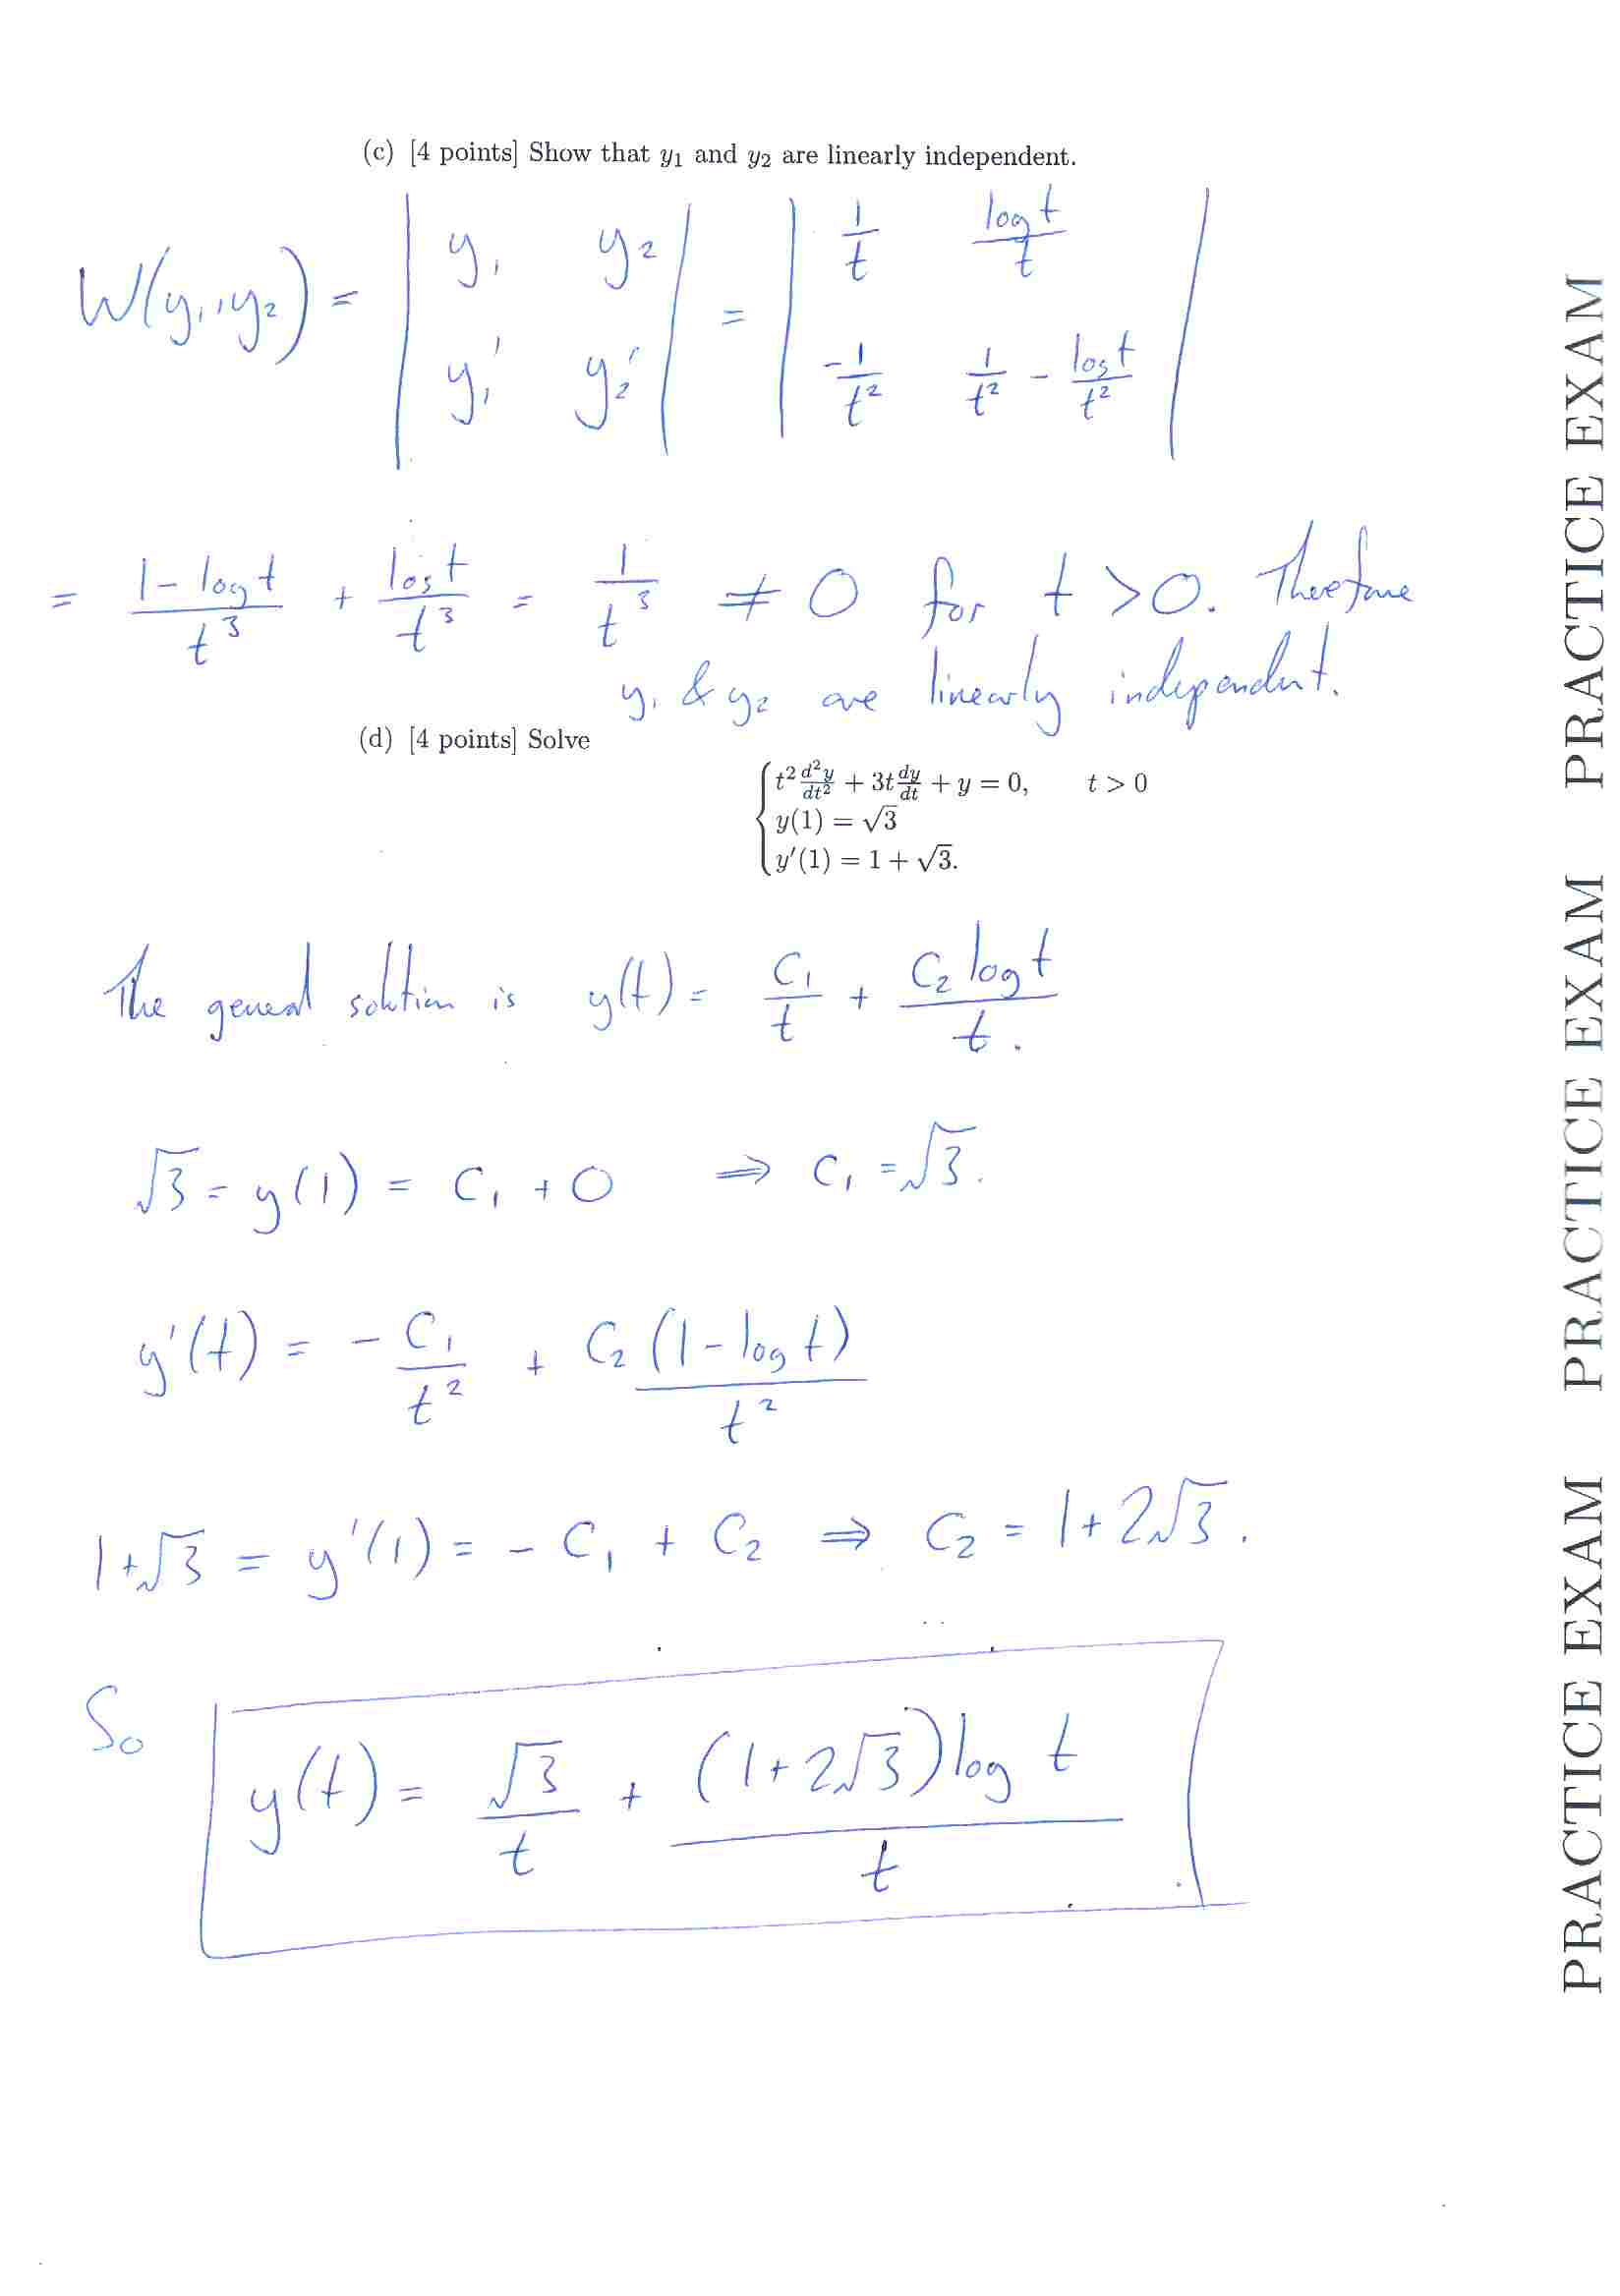 (c) [4 points] Show that y₁ and y₂ are linearly independent.
W(y₁, y₂) = | y₁ y₂ ; y₁' y₂' | = | 1/t log t/t ; -1/t² 1/t² - log t/t² |
= (1 - log t)/t³ + log t/t³ = 1/t³ ≠ 0 for t > 0. Therefore
y₁ & y₂ are linearly independent.
(d) [4 points] Solve
{ t² d²y/dt² + 3t dy/dt + y = 0, t > 0
y(1) = √3
y'(1) = 1 + √3.
The general solution is y(t) = C₁/t + C₂ log t/t.
√3 = y(1) = C₁ + 0 ⇒ C₁ = √3.
y'(t) = - C₁/t² + C₂ (1 - log t)/t²
1+√3 = y'(1) = - C₁ + C₂ ⇒ C₂ = 1+2√3.
So y(t) = √3/t + (1+2√3) log t/t
PRACTICE EXAM PRACTICE EXAM PRACTICE EXAM PRACTICE EXAM